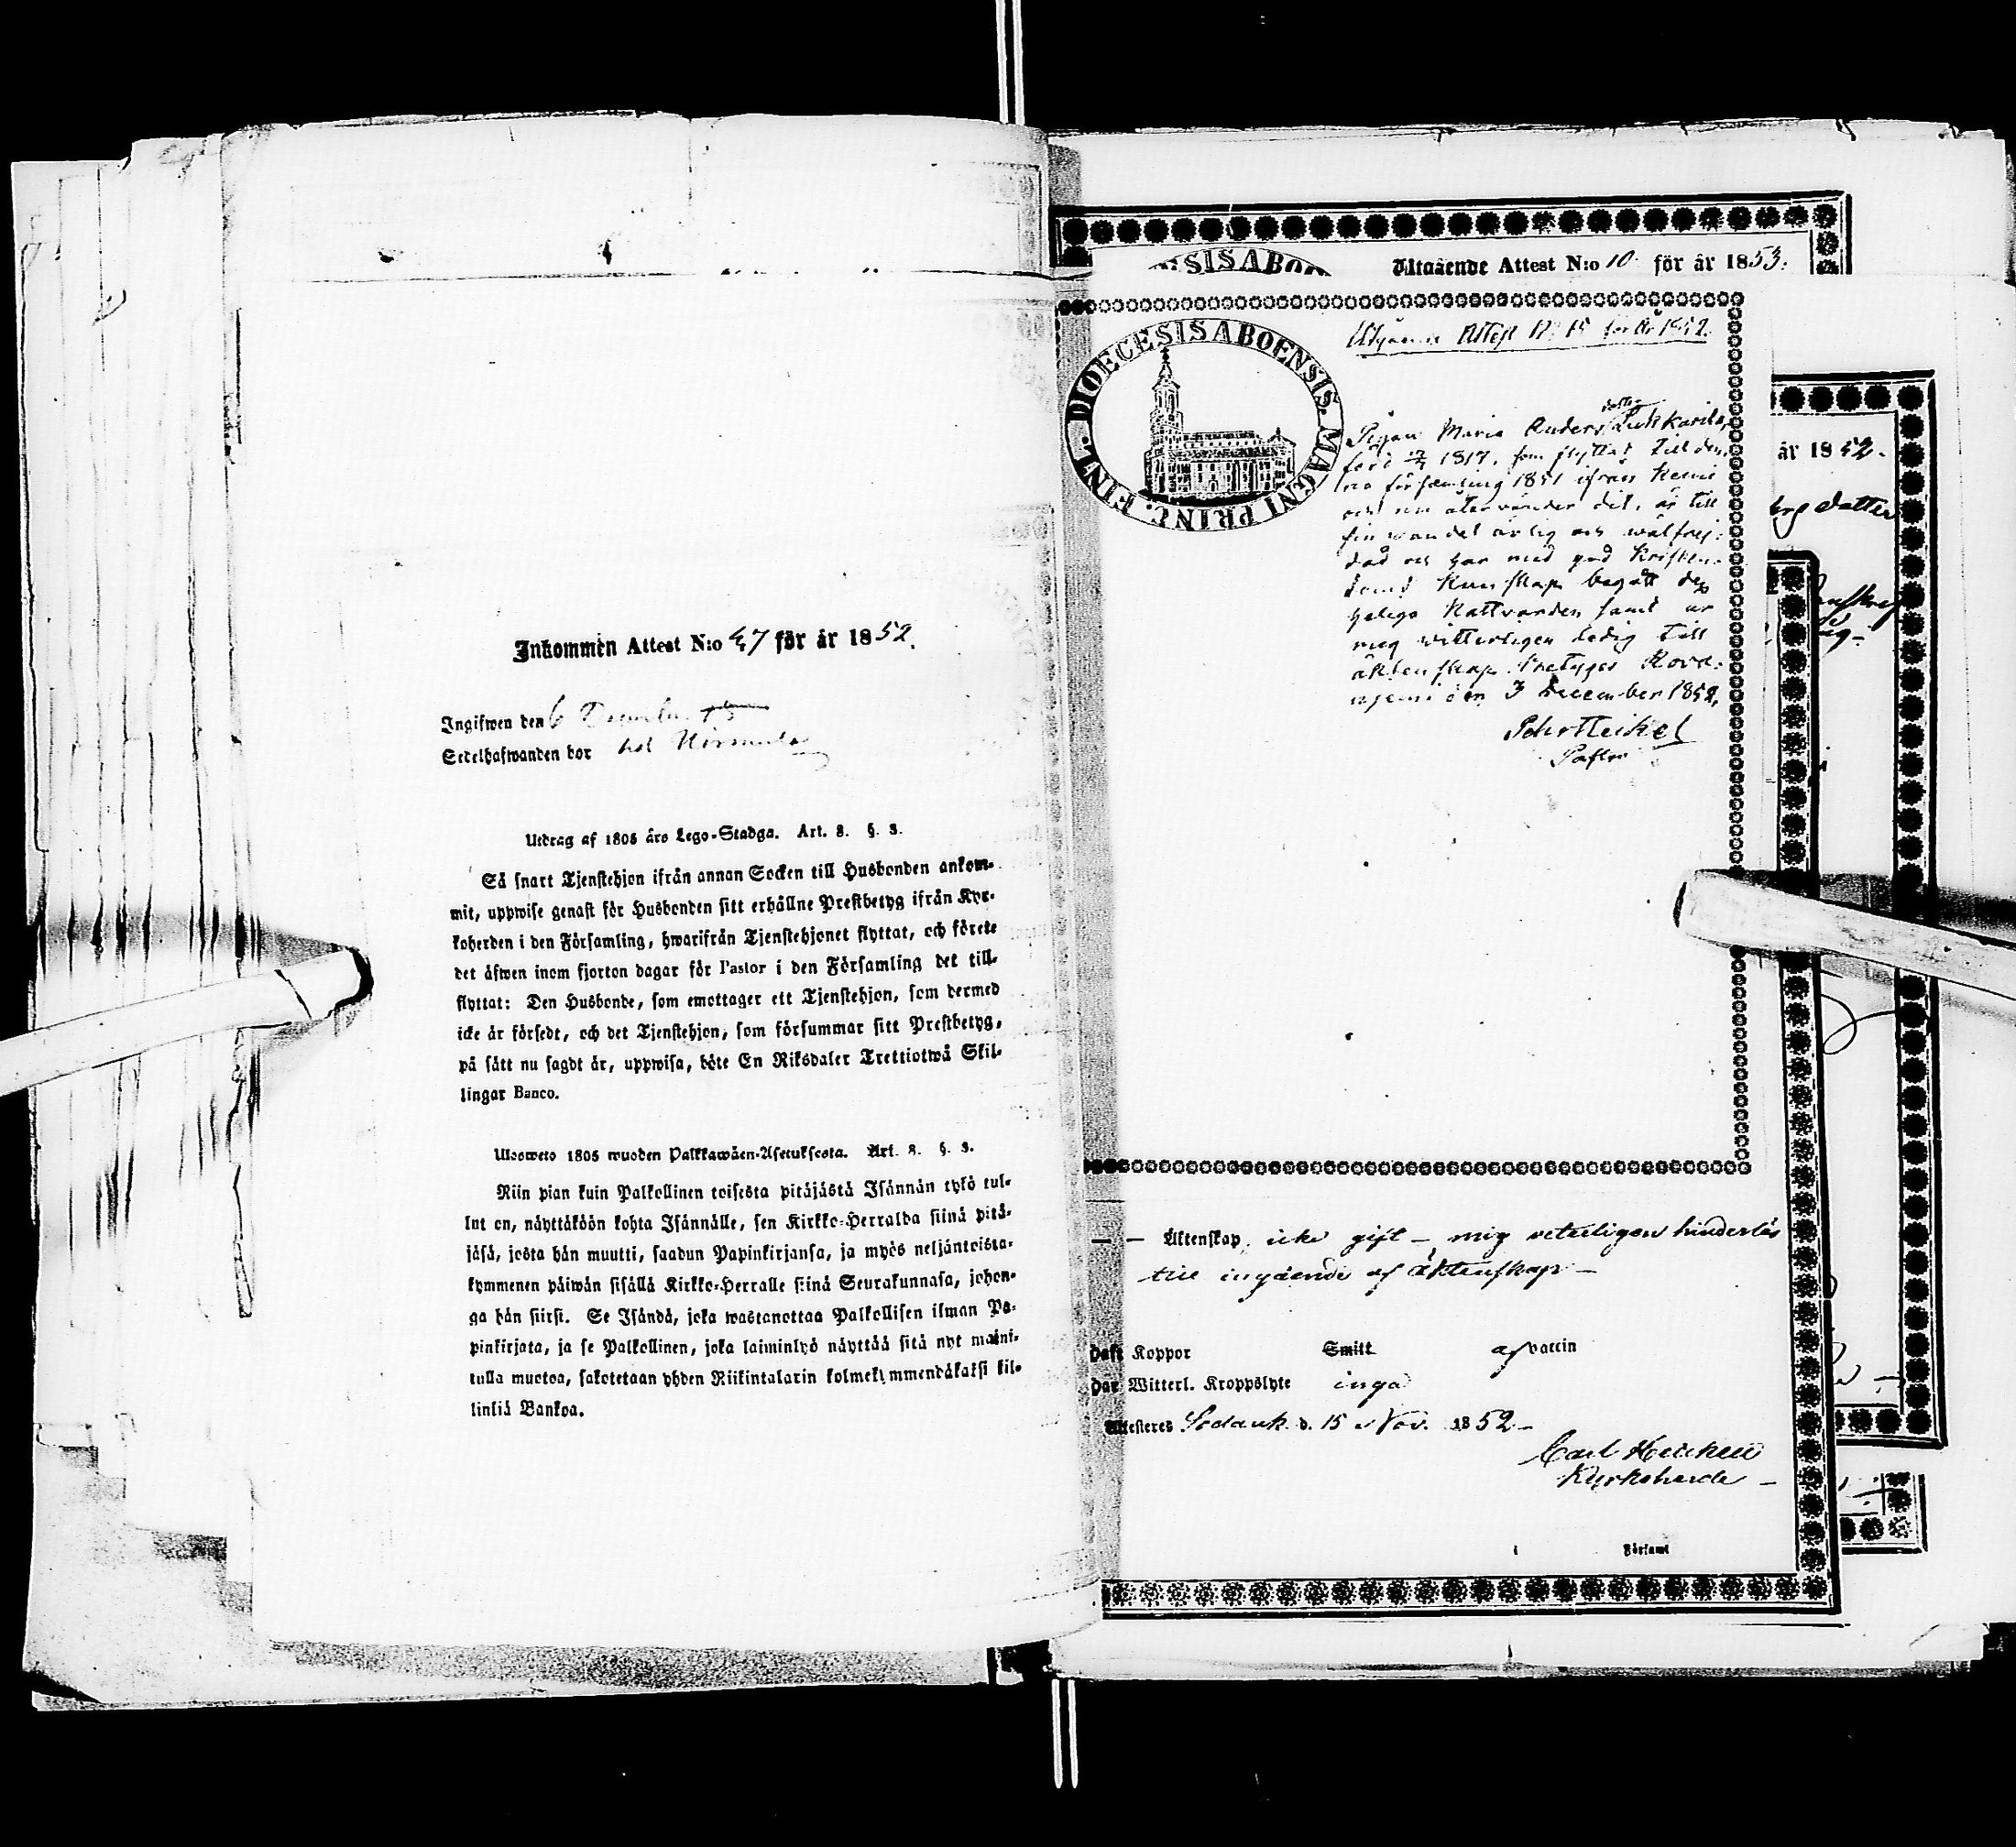 Inkommen Attest N:o 47 för år 1852.
Ingifwen den 6
Sedelhafwanden bor hos
Utdrag af 1805 års Lego-Stadga. Art. 8. §. 3.
Så snart Tjenstehjon ifrån annan Socken till Husbonden ankom-
mit, uppwise genast för Husbonden sitt erhållne Prestbetyg ifrån Kyr-
koherden i den Församling, hwarifrån Tjenstehjonet flyttat, och förete
det äfwen inom fjorton dagar för Pastor i den Församling det till-
flyttat: Den Husbonde, som emottager ett Tjenstehjon, som dermed
icke är försedt, och det Tjenstehjon, som försummar sitt Prestbetyg,
på sätt nu sagdt är, uppwisa, böte En Riksdaler Trettiotwå Skil-
lingar Banco.
Ulosweto 1805 wuoden Palkkawäen-Asetuksesta. Art. 8. §. 3.
Niin pian kuin Palkollinen toisesta pitäjästä Isännän tykö tul-
lut on, näyttäköön kohta Isännälle, sen Kirkko-Herralda siinä pitä-
jäsä, josta hän muutti, saadun Papinkirjansa, ja myös neljäntoista-
kymmenen päiwän sisällä Kirkko-Herralle siinä Seurakunnasa, johon-
ga hän siirsi. Se Isändä, joka wastanottaa Palkollisen ilman Pa-
pinkirjata, ja se Palkollinen, joka laiminlyö näyttää sitä nyt maini-
tulla muotoa, sakotetaan yhden Riikintalarin kolmekymmendäkaksi kil-
linkiä Bankoa.
Utgående Attest N:o 10 för år 1853.
SIS ABO
DIOECESIS ABOENSIS. MAGNI PRINC. FINL.
Attest N:o 15 för År 1852.
dotter
Pigan Maria Anders Luhkarila,
född 1817, som flyttat till den-
na församling 1851 ifrån Kemi
och nu återvänder dit, är till
sin wandel ärlig och wälfrej-
dad och har med god Kristen-
doms Kunskap begått den
heliga Nattvarden samt är
mig witterligen ledig till
äktenskap. betygar Rova-
niemi den 3 December 1852,
Joh: Heikel
Pastor
år 1852.
dotter
Äktenskap, icke gift – mig veterligen hinderlös
till ingående af äktenskap –
haft Koppor Smitt af vaccin
har Witterl. Kroppslyte inga
Attesteres Sodank. d. 15 Nov. 1852 –
Carl Heickell
Kyrkoherde –
i Församl